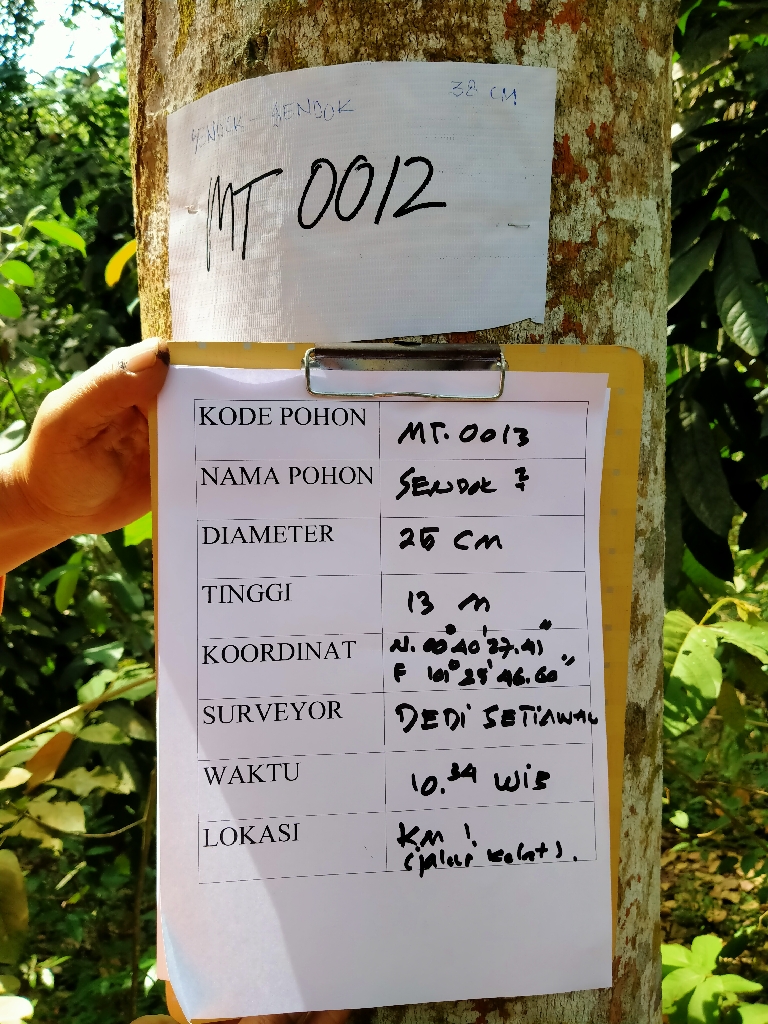 SENDOK - SENDOK 38 CM
MT 0012
KODE POHON MT. 0013
NAMA POHON SENDOK 2
DIAMETER 25 CM
TINGGI 13 M
KOORDINAT N. 00° 40' 27.41"
E 101° 25' 46.60"
SURVEYOR DEDI SETIAWAN
WAKTU 10.34 WIB
LOKASI KM 1.
(jalur